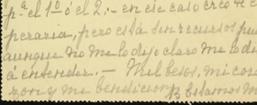 pª el 1º ó el 2; - en ese caso creo te e
peraria, pero está sin recursos pues
aunque no me lo dijo claro me lo dió
á entender. - Mil besos, mi cora
zon y me bendicion